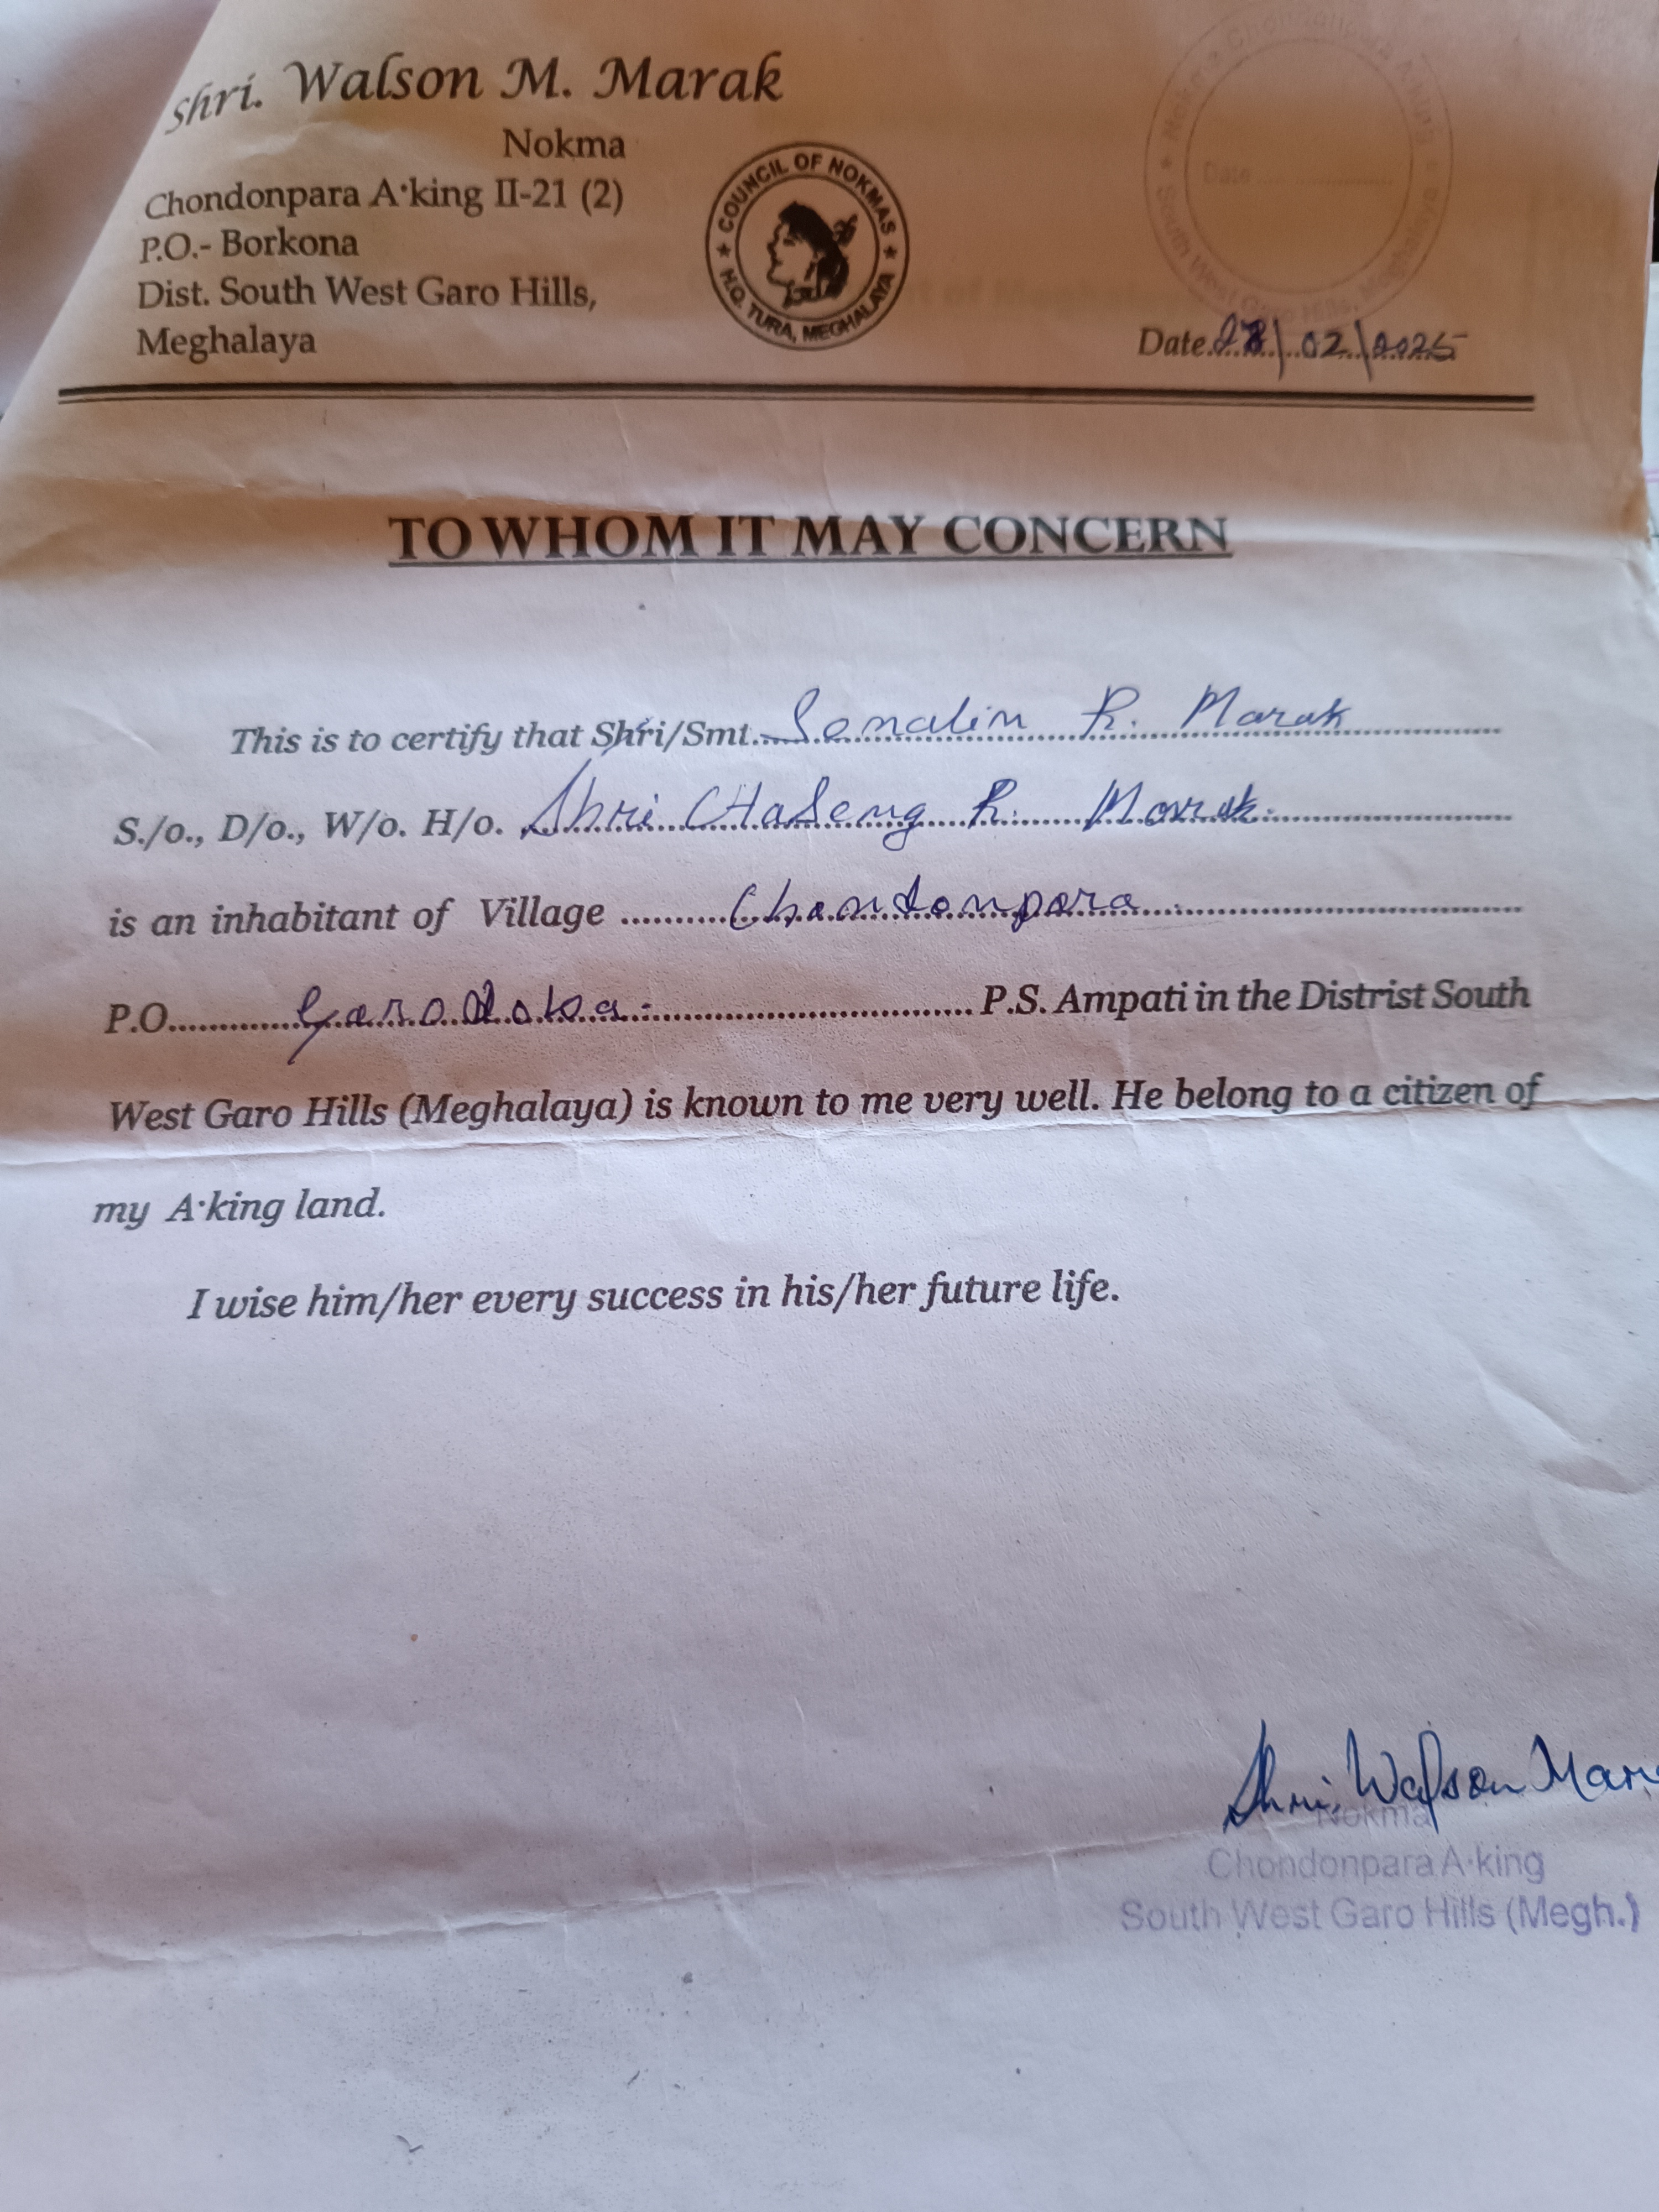 Shri. Walson M. Marak
Nokma
Chondonpara A·king II-21 (2)
P.O.- Borkona
Dist. South West Garo Hills,
Meghalaya
★ COUNCIL OF NOKMAS ★
H.Q. TURA, MEGHALAYA
★ Nokma Chondonpara A·king ★
Date....................
South West Garo Hills, Meghalaya
Date. /02/2025
TO WHOM IT MAY CONCERN
This is to certify that Shri/Smt. Sonalin R. Marak
S./o., D/o., W/o. H/o. Shri R. Marak.
is an inhabitant of Village Chondonpara
P.O. Garodoba. P.S. Ampati in the Distrist South
West Garo Hills (Meghalaya) is known to me very well. He belong to a citizen of
my A·king land.
I wise him/her every success in his/her future life.
Shri. Walson Mara
Nokma
Chondonpara A·king
South West Garo Hills (Megh.)